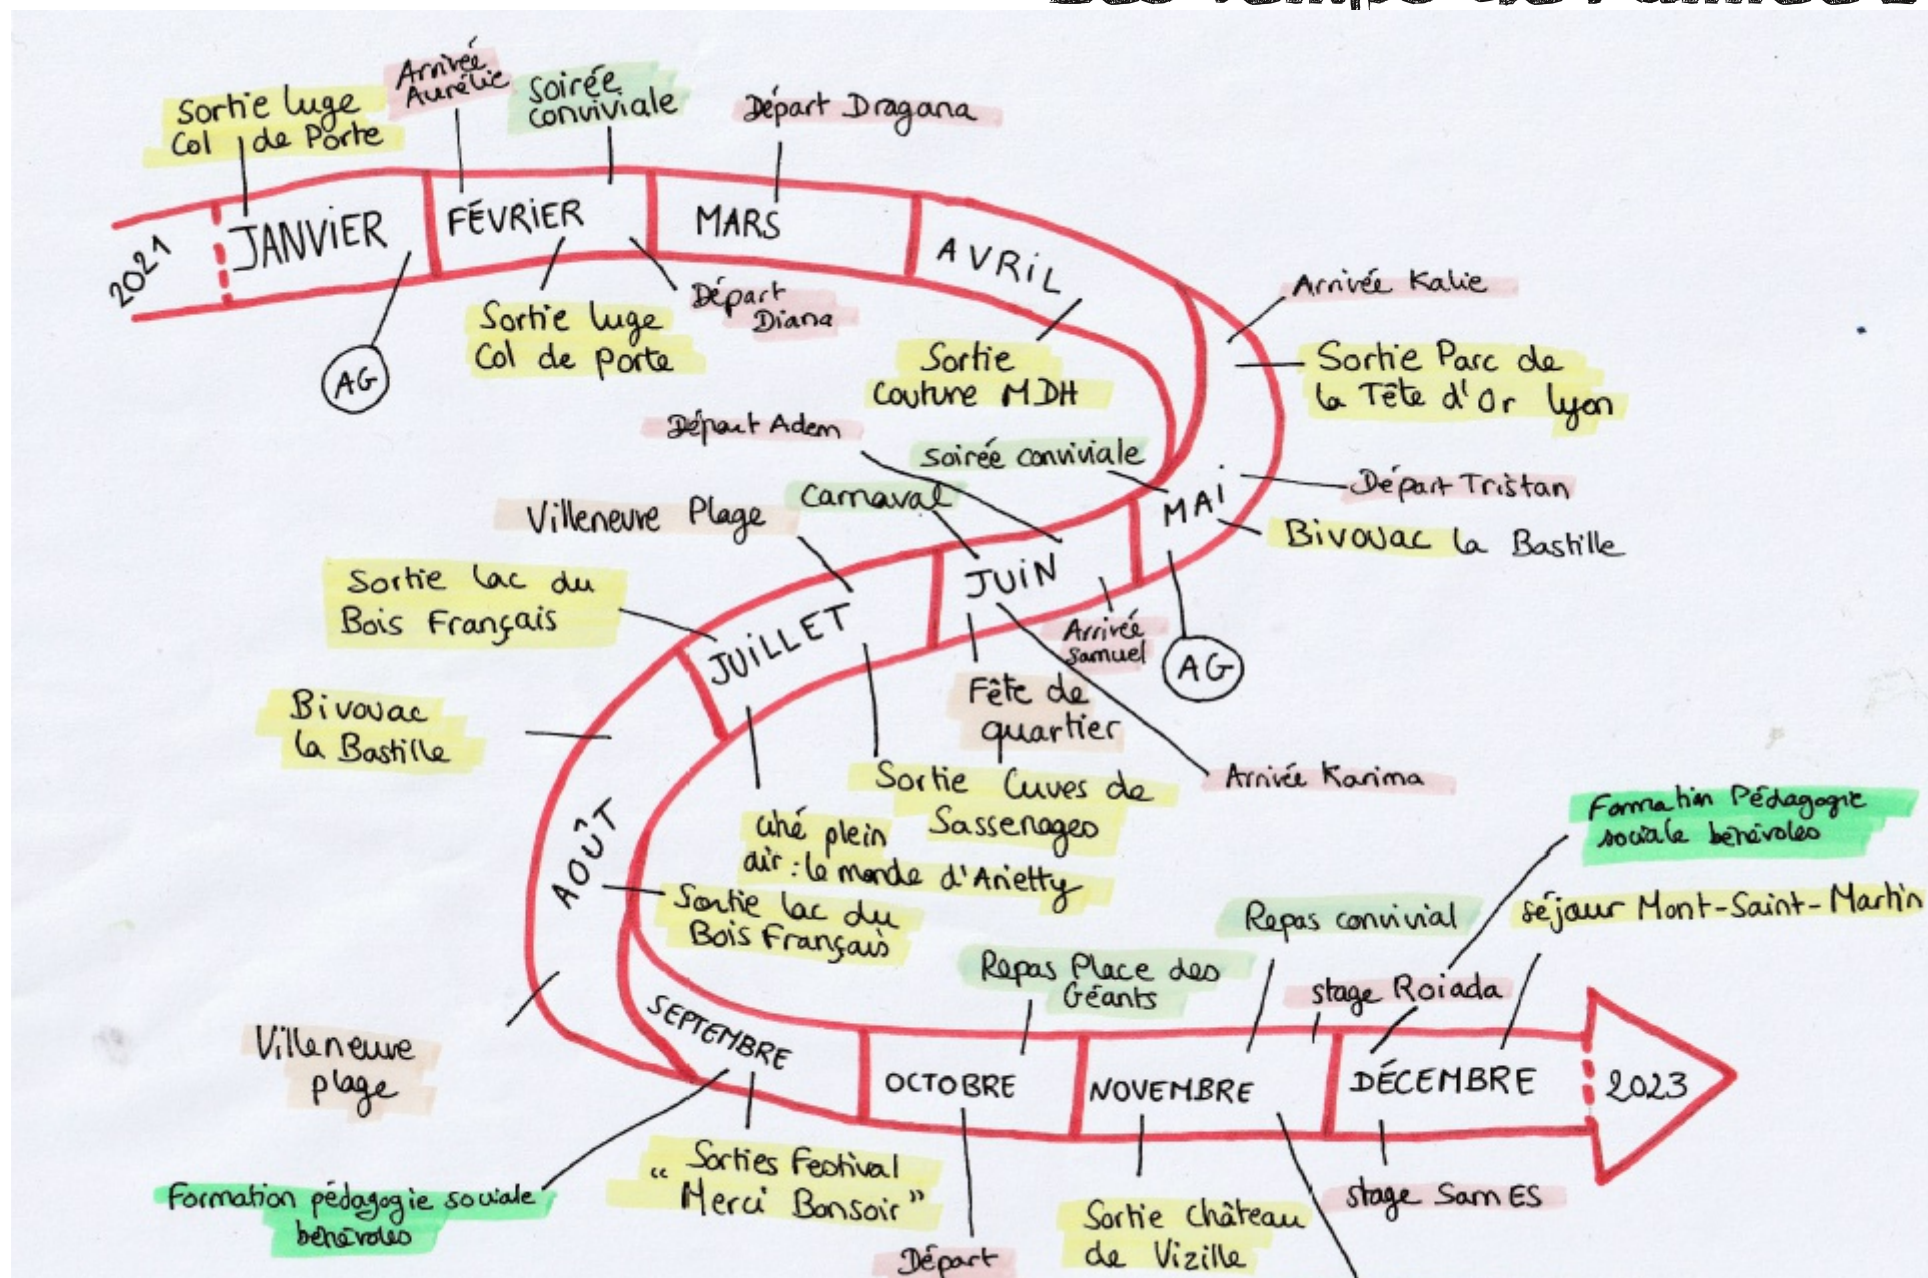 Sortie luge
Col de Porte
Arrivée
Aurélie
Soirée
conviviale
Départ Dragana
2021
JANVIER
FÉVRIER
MARS
AVRIL
AG
Sortie luge
Col de Porte
Départ
Diana
Sortie
Couture MDH
Arrivée Kalie
Sortie Parc de
la Tête d'Or Lyon
Départ Adem
soirée conviviale
Carnaval
Villeneuve Plage
MAI
Départ Tristan
Bivouac la Bastille
Sortie lac du
Bois Français
JUILLET
JUIN
Arrivée
Samuel
AG
Fête de
quartier
Arrivée Karima
Bivouac
la Bastille
Sortie Cuves de
Sassenages
AOÛT
Ciné plein
air : le monde d'Arietty
Sortie lac du
Bois Français
Formation Pédagogie
sociale bénévoles
séjour Mont-Saint-Martin
Repas convivial
Repas Place des
Géants
stage Roiada
Villeneuve
plage
SEPTEMBRE
OCTOBRE
NOVEMBRE
DÉCEMBRE
2023
Formation pédagogie sociale
bénévoles
Sorties Festival
“ Merci Bonsoir ”
Départ
Sortie château
de Vizille
stage Sam ES